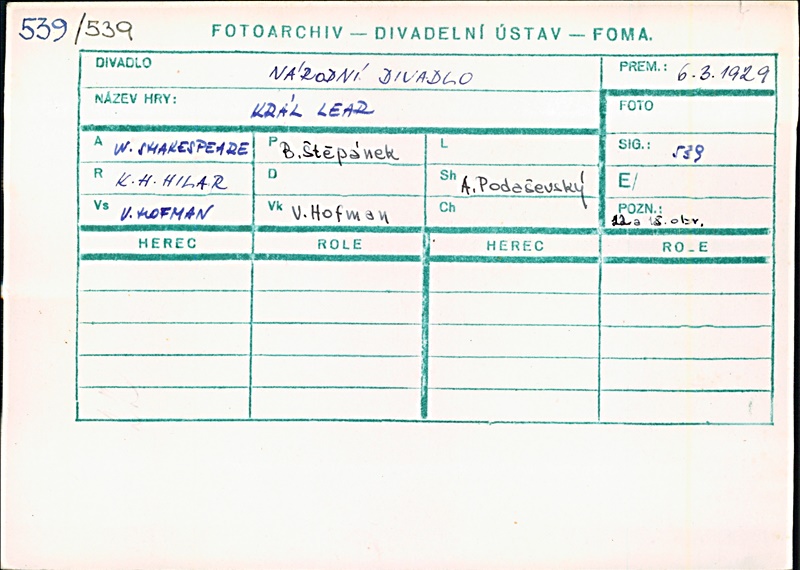 539/539 FOTOARCHIV — DIVADELNÍ ÚSTAV — FOMA.
DIVADLO NÁRODNÍ DIVADLO
PREM.: 6.3.1929
NÁZEV HRY: KRÁL LEAR
FOTO
A W. SHAKESPEARE P B. Štěpánek L
SIG.: 539
R K.H. HILAR D Sh A. Podaševský
E/
Vs V. HOFMAN Vk V. Hofman Ch
POZN.:
12. a 15. obr.
HEREC ROLE HEREC ROLE